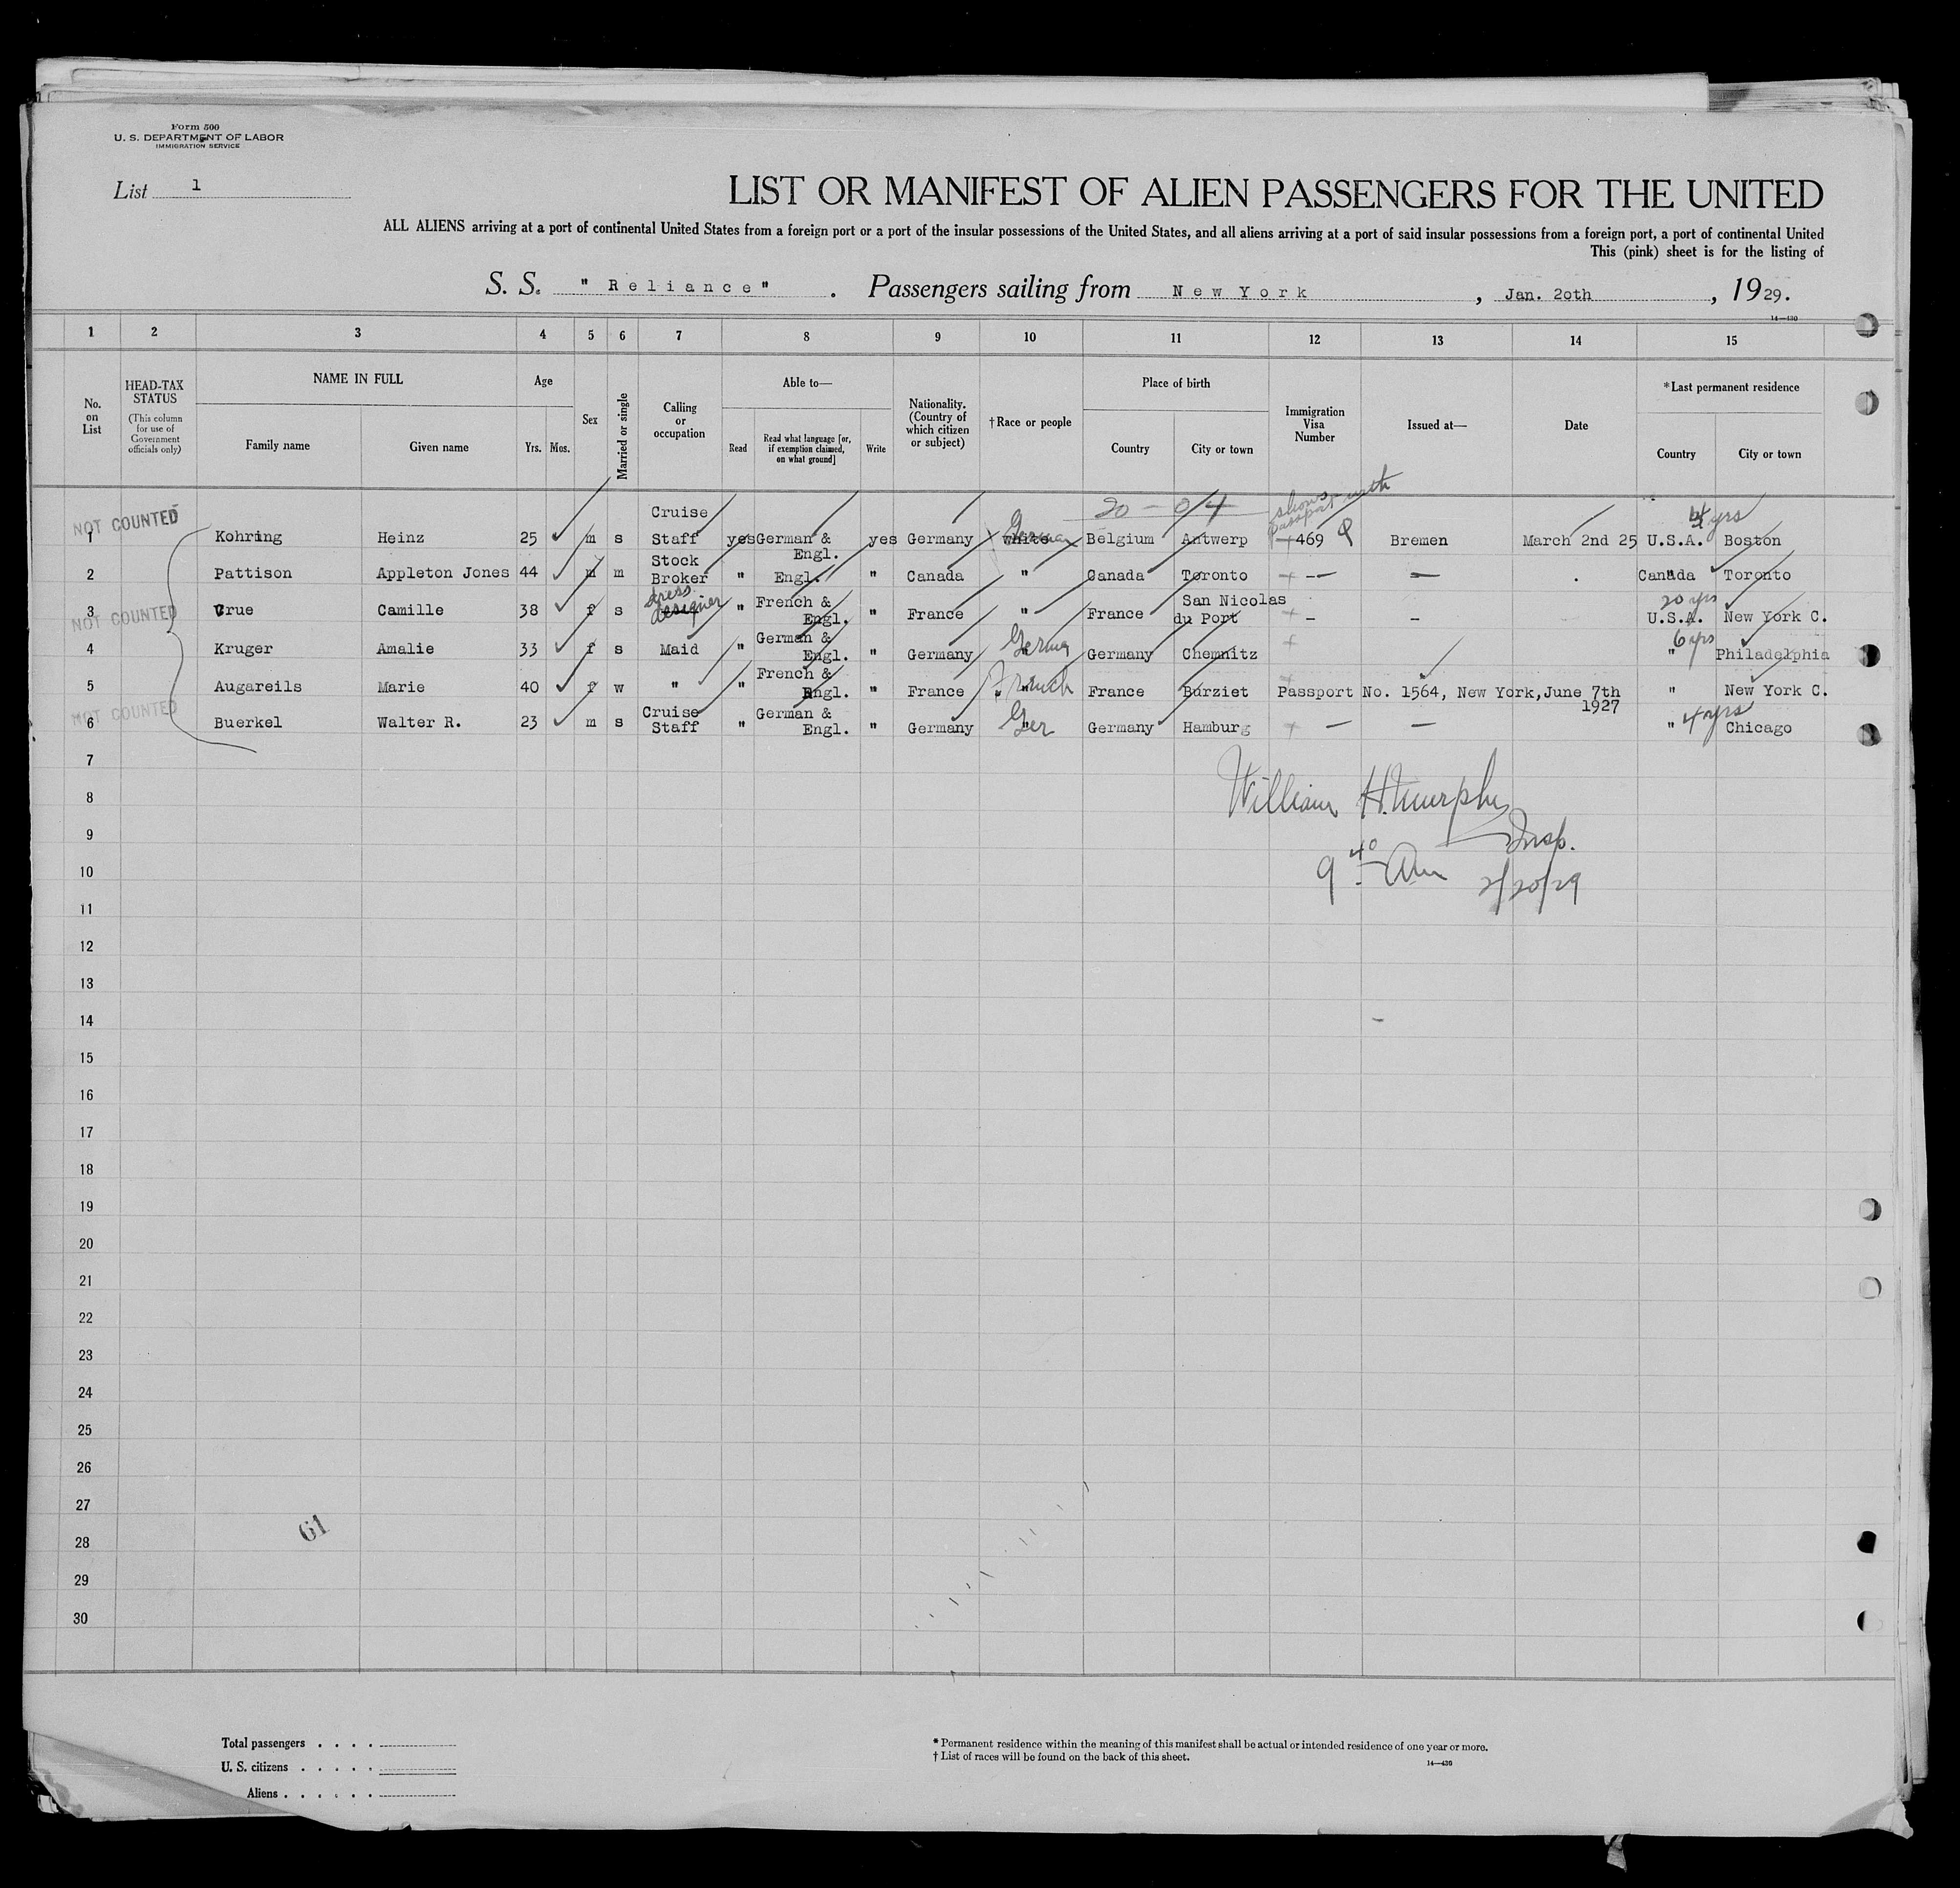 Form 500
U. S. DEPARTMENT OF LABOR
IMMIGRATION SERVICE
List 1
LIST OR MANIFEST OF ALIEN PASSENGERS FOR THE UNITED
ALL ALIENS arriving at a port of continental United States from a foreign port or a port of the insular possessions of the United States, and all aliens arriving at a port of said insular possessions from a foreign port, a port of continental United
This (pink) sheet is for the listing of
S. S. "Reliance". Passengers sailing from New York, Jan. 20th, 1929.
14—430
1 2 3 4 5 6 7 8 9 10 11 12 13 14 15
No. on List
HEAD-TAX STATUS (This column for use of Government officials only)
NAME IN FULL
Family name Given name
Age
Yrs. Mos.
Sex
Married or single
Calling or occupation
Able to—
Read Read what language [or, if exemption claimed, on what ground] Write
Nationality. (Country of which citizen or subject)
†Race or people
Place of birth
Country City or town
Immigration Visa Number
Issued at—
Date
*Last permanent residence
Country City or town
20 - 0/4 shows passport with
NOT COUNTED 4 yrs
1 Kohring Heinz 25 m s Cruise Staff yes German & Engl. yes Germany white German Belgium Antwerp 469 Bremen March 2nd 25 U.S.A. Boston
2 Pattison Appleton Jones 44 m m Stock Broker " Engl. " Canada " Canada Toronto -- — Canada Toronto
NOT COUNTED 20 yrs
3 Crue Camille 38 f s dress designer " French & Engl. " France " France San Nicolas du Port - - U.S.A. New York C.
4 Kruger Amalie 33 f s Maid " German & Engl. " Germany German Germany Chemnitz " 6 yrs Philadelphia
5 Augareils Marie 40 f w " " French & Engl. " France French France Burziet Passport No. 1564, New York, June 7th 1927 " New York C.
NOT COUNTED
6 Buerkel Walter R. 23 m s Cruise Staff " German & Engl. " Germany Ger Germany Hamburg — — " 4 yrs Chicago
7
William H. Murphy
8
9 Insp.
10 9 40 Am 2/20/29
11
12
13
14
15
16
17
18
19
20
21
22
23
24
25
26
27
61
28
29
30
Total passengers . . . .
U. S. citizens . . . . .
Aliens . . . . . .
* Permanent residence within the meaning of this manifest shall be actual or intended residence of one year or more.
† List of races will be found on the back of this sheet.
14—430